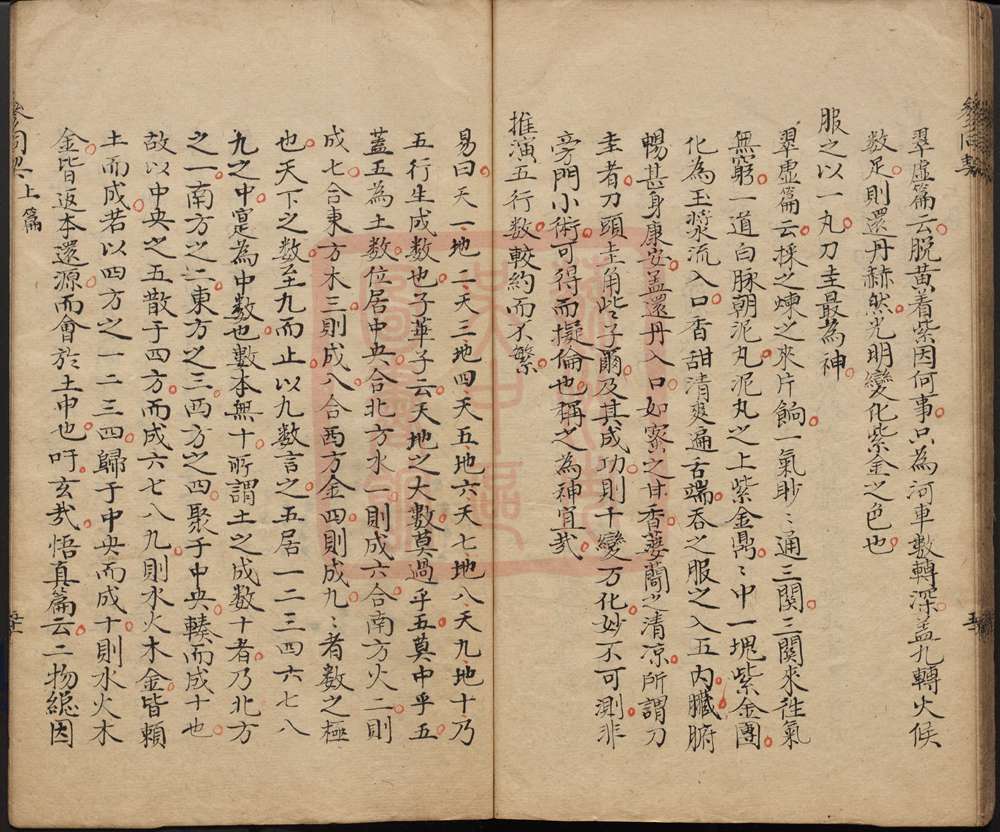 翠虛篇云脫黃着紫因何事只為河車數轉深蓋九轉火候
數足則還丹赫然光明變化紫金之色也
服之以一丸刀圭最為神
翠虛篇云採之煉之來片餉一氣眇〻通三関三関來往氣
無窮一道白脉朝泥丸泥丸之上紫金鼎〻中一塊紫金團
化為玉漿流入口香甜清爽遍舌端吞之服之入五內臟腑
暢甚身康安盖還丹入口如蜜之甘香薆蘭之清凉所謂刀
圭者刀頭圭角些子爾及其成功則千變万化妙不可測非
旁門小術可得而擬倫也稱之為神宜哉
推演五行數較約而不繁
易曰天一地二天三地四天五地六天七地八天九地十乃
五行生成數也子華子云天地之大數莫過乎五莫中乎五
蓋五為土數位居中央合北方水一則成六合南方火二則
成七合東方木三則成八合西方金四則成九〻者數之極
也天下之數至九而止以九數言之五居一二三四六七八
九之中寔為中數也數本無十所謂土之成數十者乃北方
之一南方之二東方之三西方之四聚于中央輳而成十也
故以中央之五散于四方而成六七八九則水火木金皆賴
土而成若以四方之一二三四歸于中央而成十則水火木
金皆返本還源而會於土中也吁玄哉悟真篇云二物緫因
參同契上篇